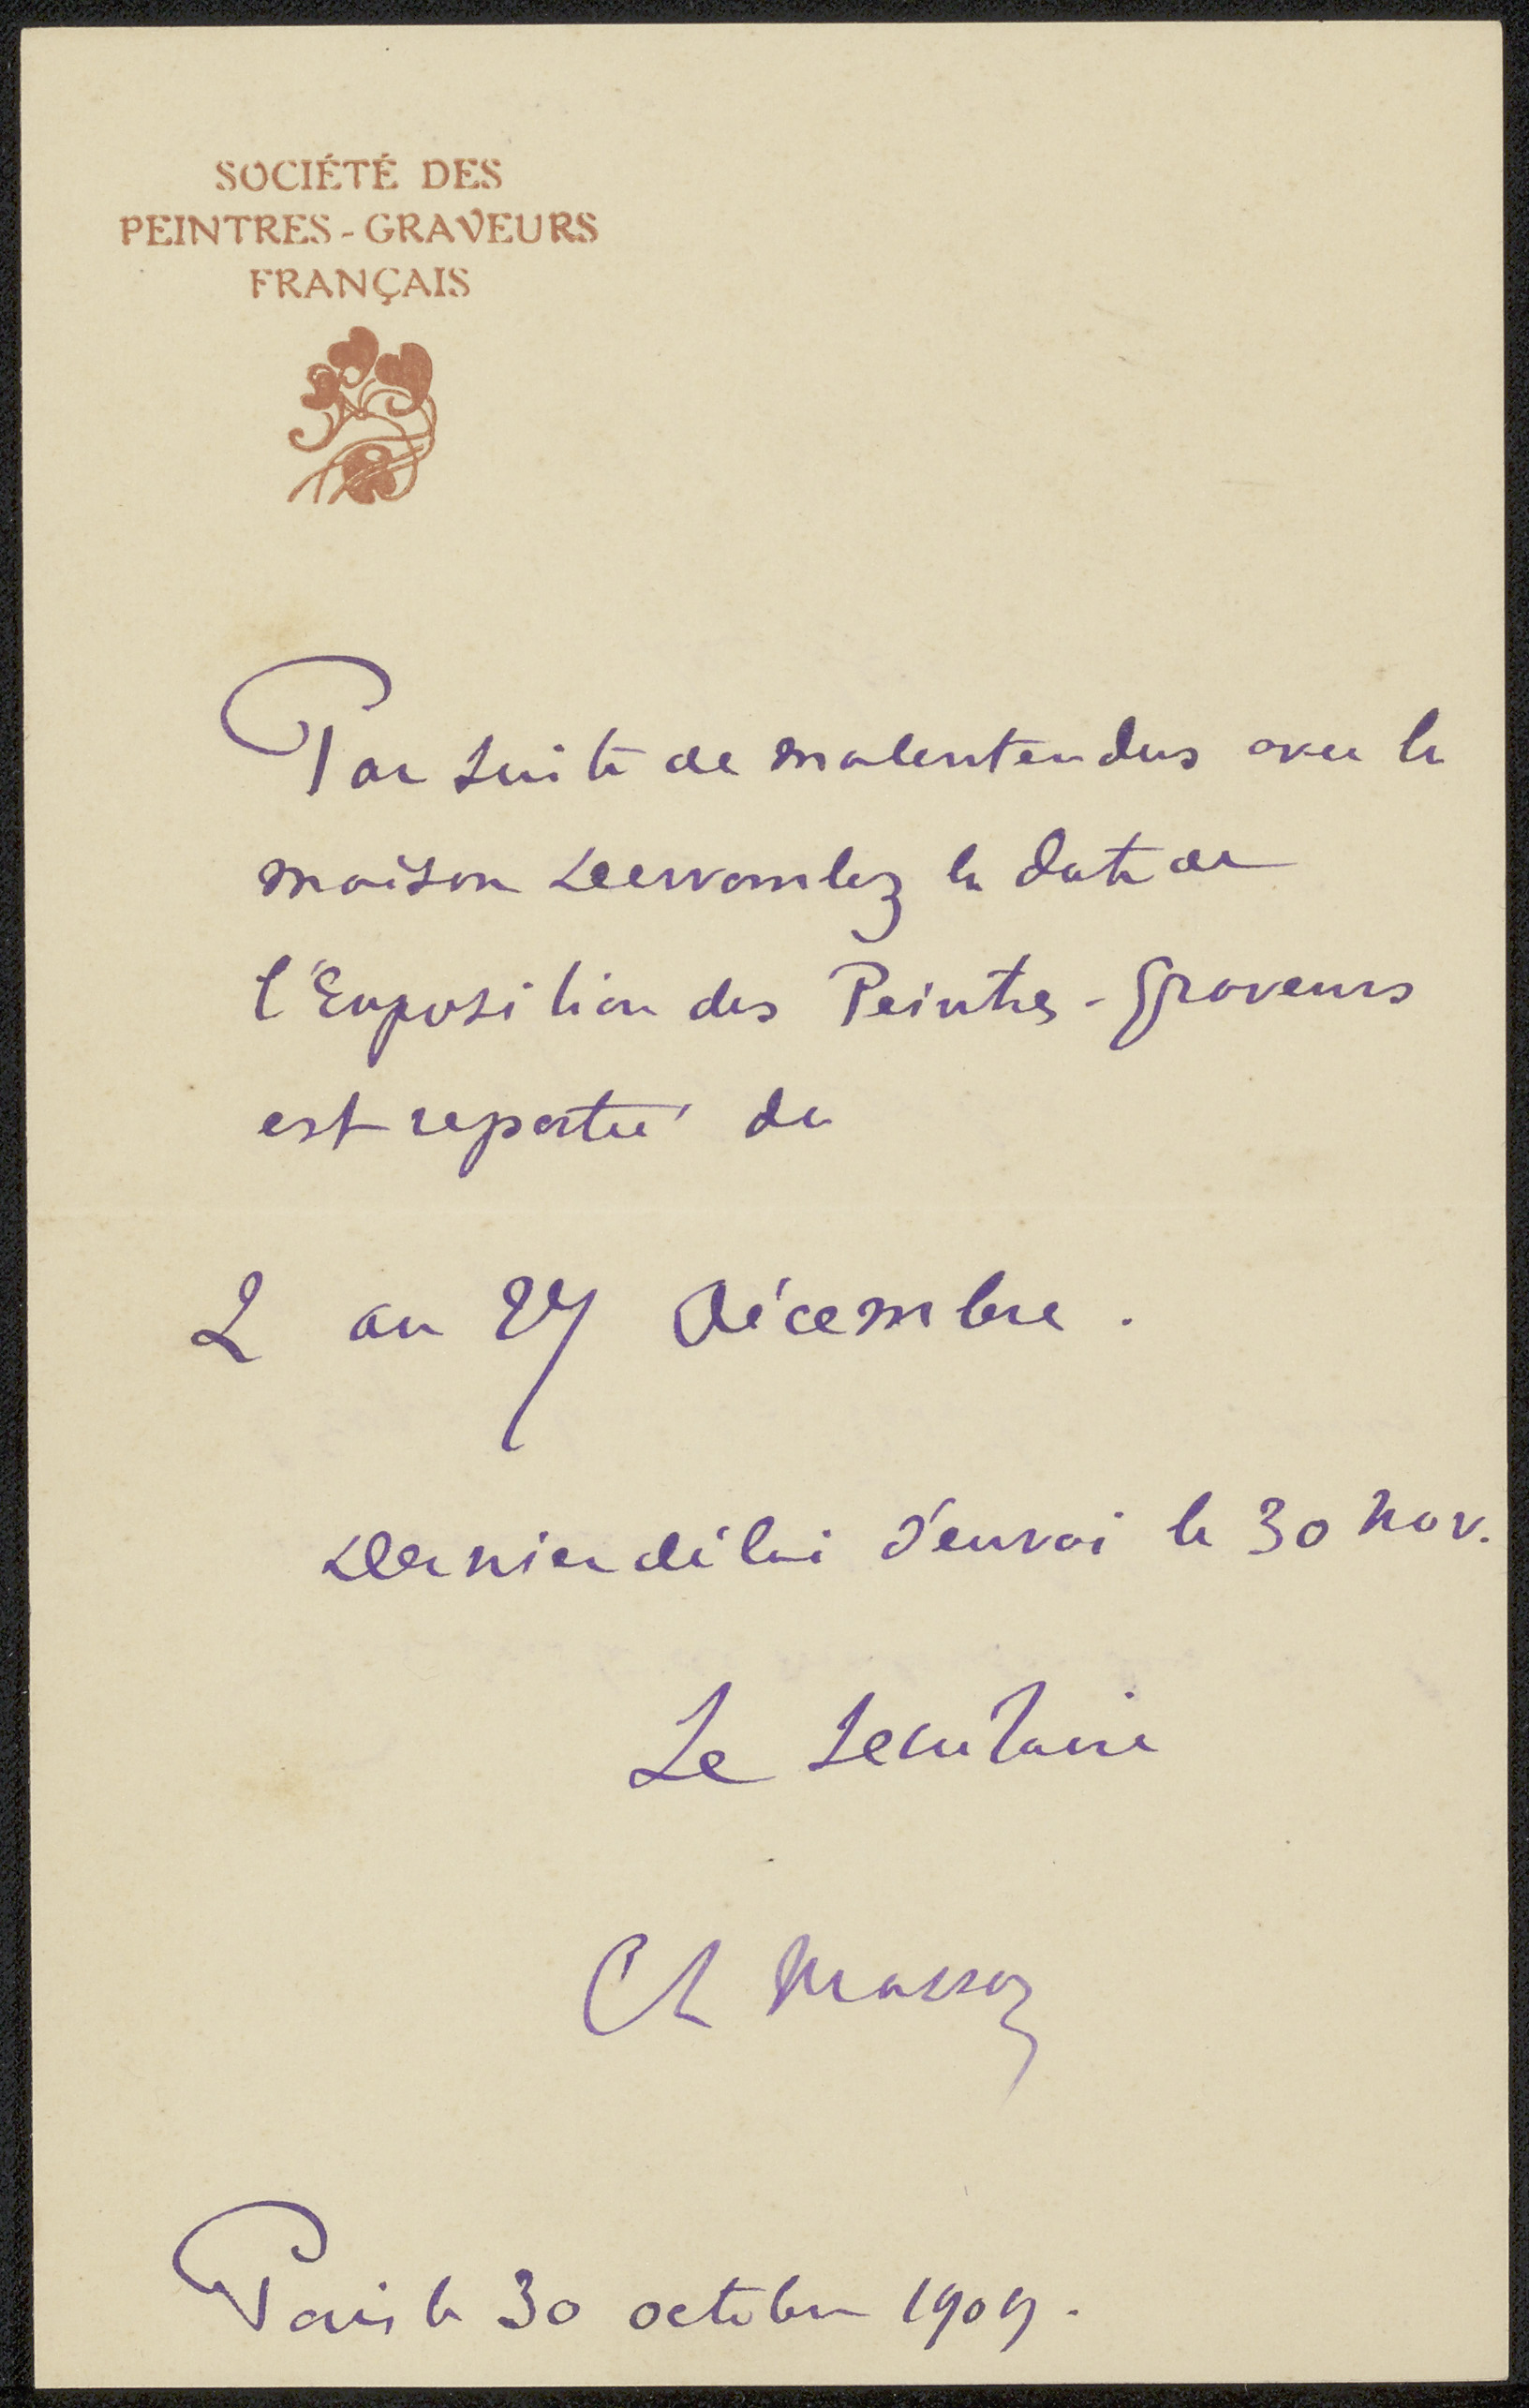 SOCIÉTÉ DES
PEINTRES-GRAVEURS
FRANÇAIS
Par suite de malentendus avec la
maison Devambez la date de
l'Exposition des Peintres-Graveurs
est reportée du
2 au 24 Décembre.
Dernier délai d'envoi le 30 nov.
Le Secrétaire
Ch Masson
Paris le 30 octobre 1909.